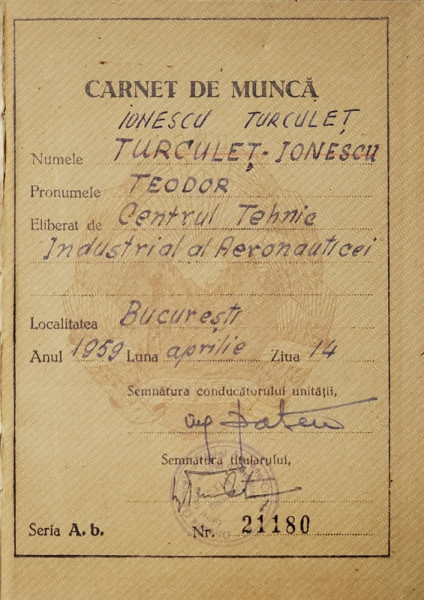 CARNET DE MUNCĂ
IONESCU TURCULEȚ
Numele TURCULEȚ-IONESCU
Pronumele TEODOR
Eliberat de Centrul Tehnic
Industrial al Aeronauticei
Localitatea București
Anul 1959 Luna aprilie Ziua 14
Semnătura conducătorului unității,
Semnătura titularului,
Seria A. b. Nr. 21180